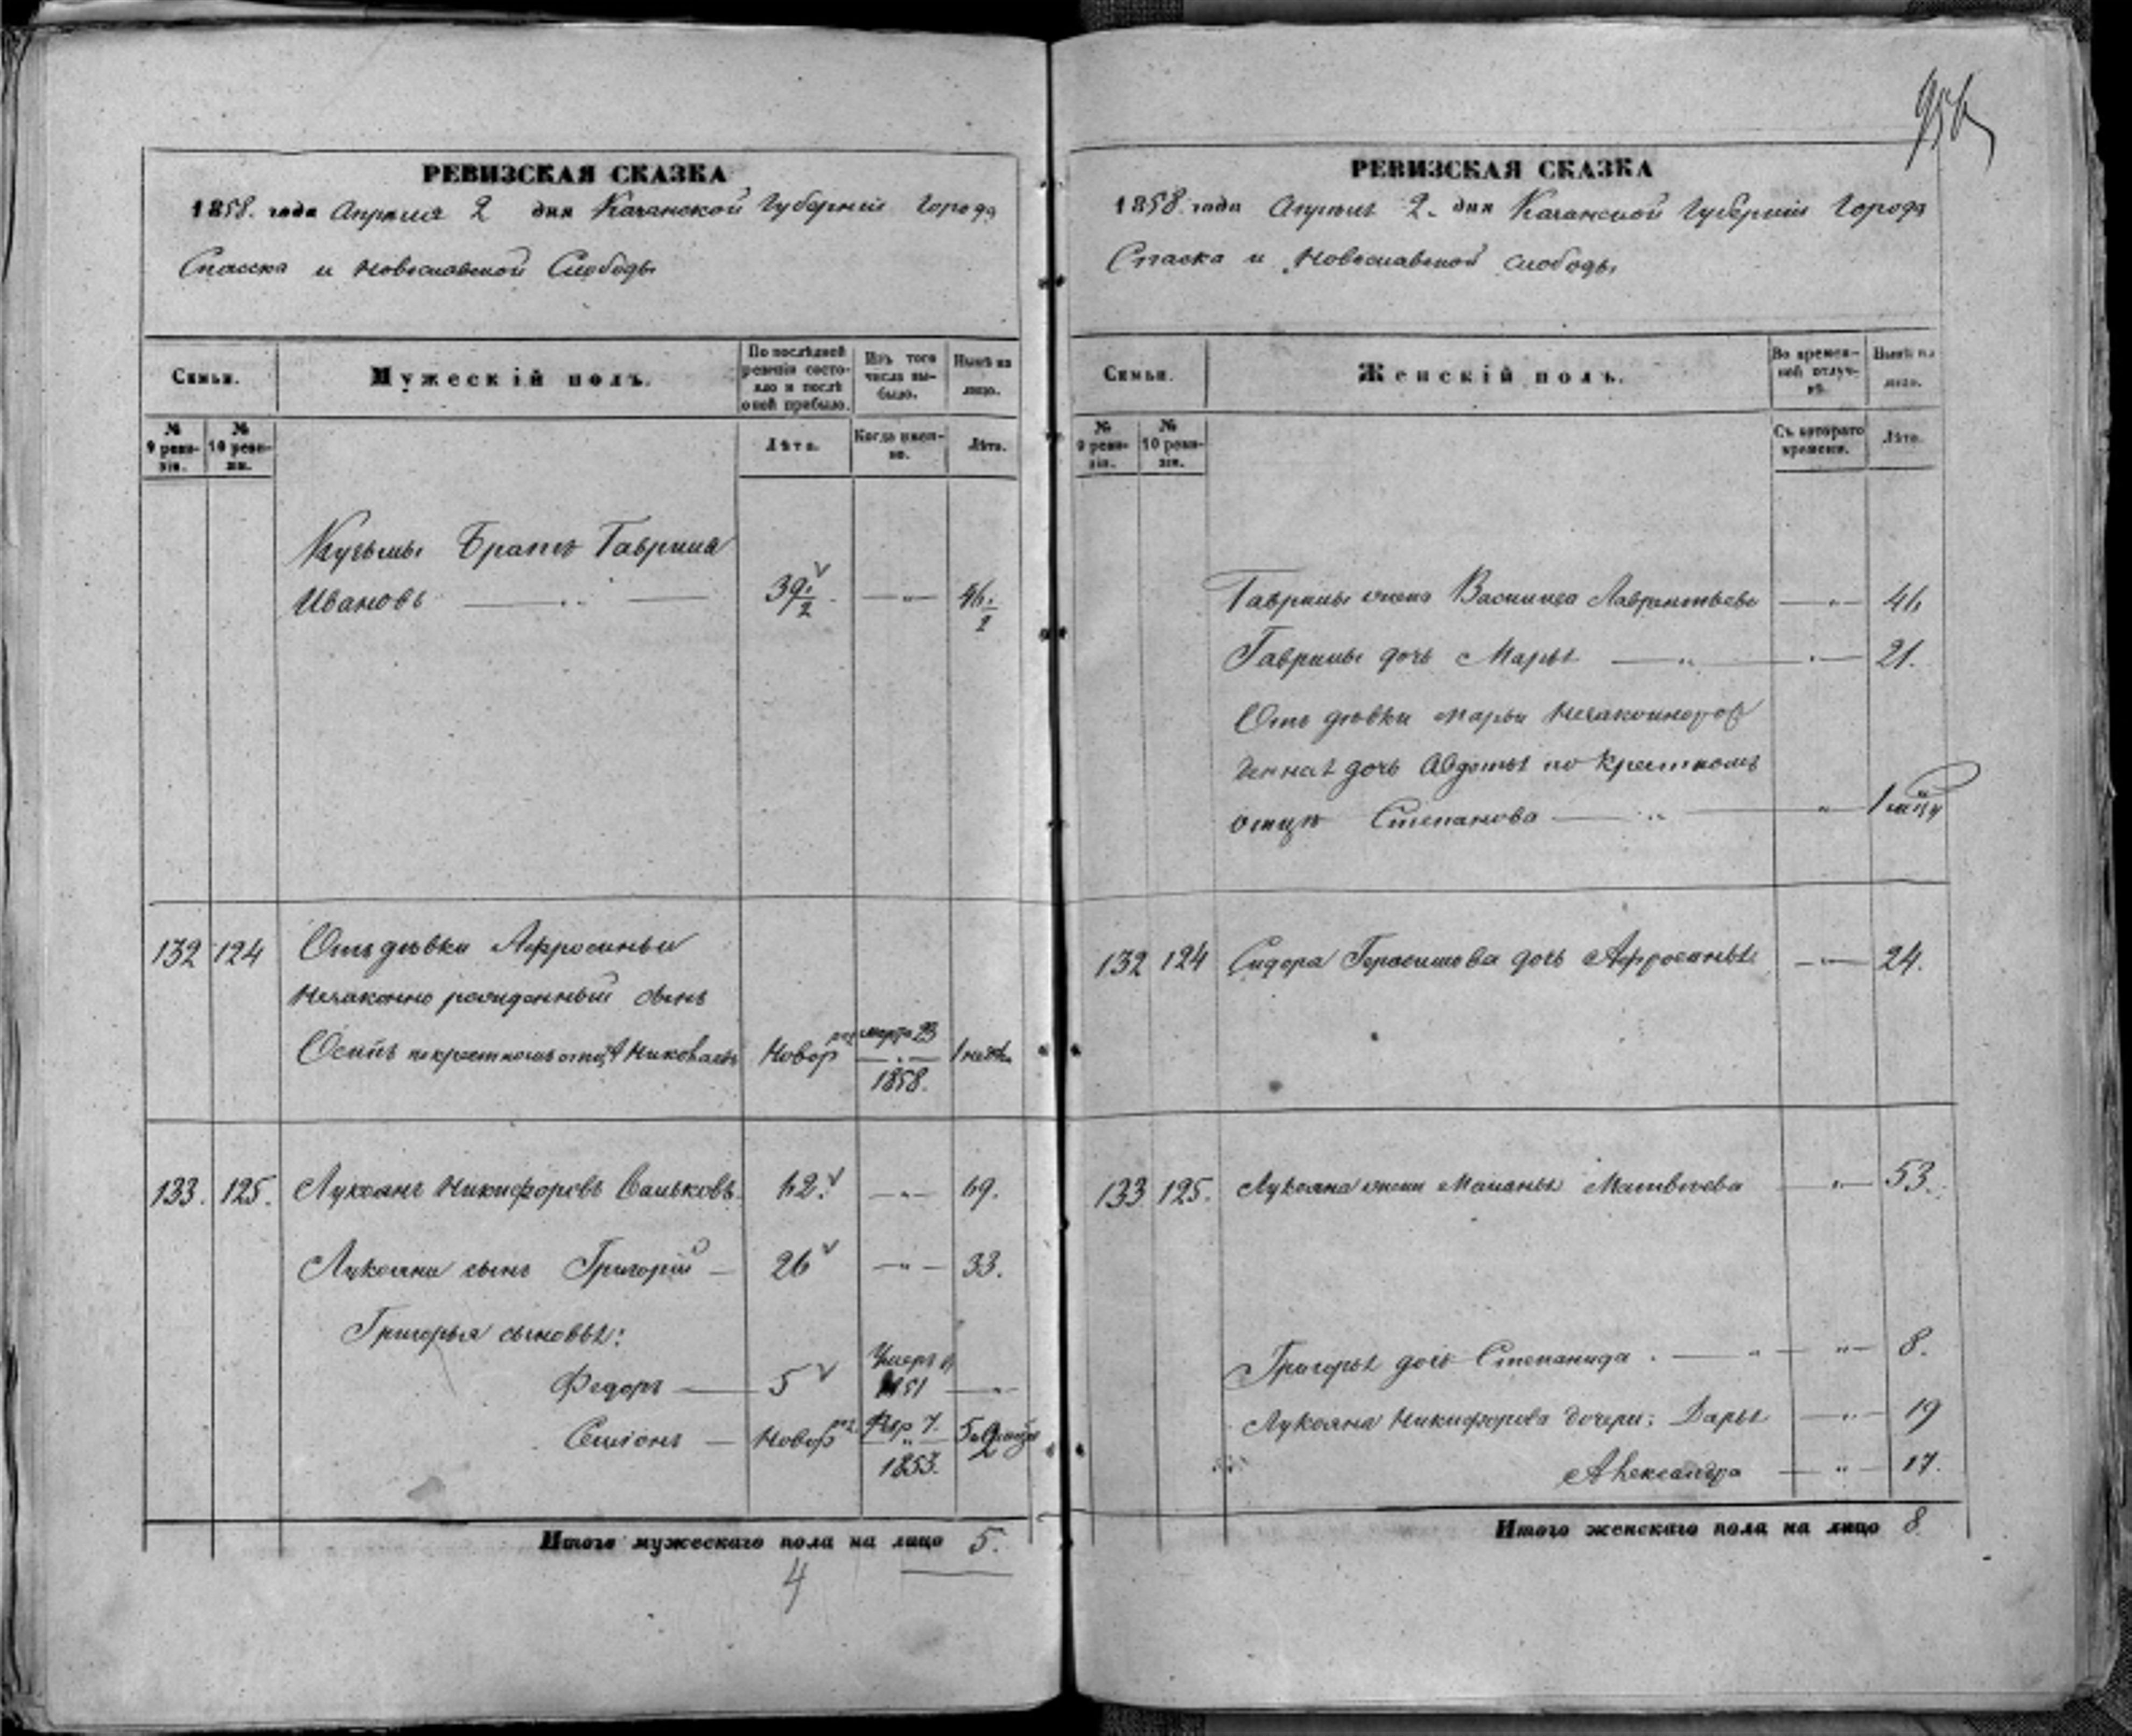 956
РЕВИЗСКАЯ СКАЗКА
1858. года Апреля 2 дня Казанской Губерніи Города
Спасска и Новоспаской Слободы
Семьи.
Мужескій полъ.
По послѣдней ревизіи состояло и послѣ оной прибыло.
Изъ того числа выбыло.
Нынѣ на лицо.
№ 9 ревизіи.
№ 10 ревизіи.
Лѣта.
Когда именно.
Лѣта.
Кузьмы Братъ Гаврила
Ивановъ — „ — 39 1/2 — „ — 46 1/2
132 124 Отъ дѣвки Афросиньи
Незаконно рожденный сынъ
Осипъ по крестномъ отцѣ Николаевъ Новор марта 23 1858.
133. 125. Лукоянъ Никифоровъ 62. — „ — 69.
Лукояна сынъ Григорій — 26 — „ — 33.
Григорья сыновья:
Федоръ — 5 Умеръ в 1851 — „ —
Семіонъ — Новор 7. 1853. 5
Итого мужескаго пола на лицо 5.
4
РЕВИЗСКАЯ СКАЗКА
1858. года Апреля 2. дня Казанской Губерніи Города
Спаска и Новоспаской слободы
Семьи.
Женскій полъ.
Во временной отлучкѣ.
Нынѣ на лицо.
№ 9 ревизіи.
№ 10 ревизіи.
Съ котораго времени.
Лѣта.
Гаврилы жена Василиса Лаврентьева — „ — 46
Гаврилы дочь Марья — „ — „ — 21.
Отъ дѣвки Марьи Незаконорож
денная дочь Авдотья по крестномъ
отцѣ Степанова — „ — „ — 1
132 124 Сидора Герасимова дочь Афросинья — „ — 24.
133 125. Лукояна жена Маланья Матвѣева — „ — 53.
Григорья дочь Степанида. — „ — „ — 8.
Лукояна Никифорова дочери: Дарья — „ — 19
Александра — „ — 17.
Итого женскаго пола на лицо 8